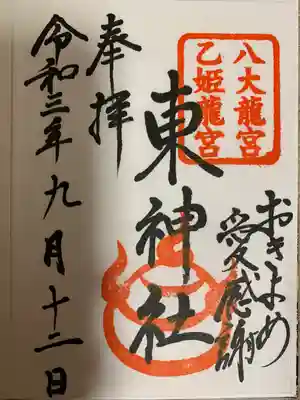 八大龍宮
乙姫龍宮
おきよめ
愛感謝
東神社
奉拝
令和三年九月十二日